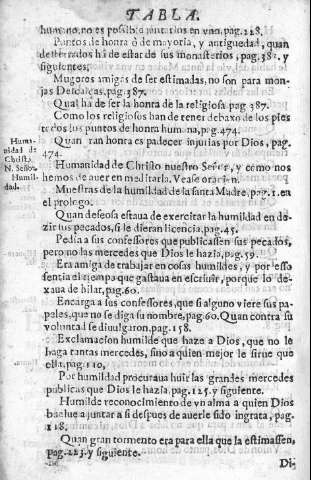 TABLA.
humano, no es posible juntarlos en vno, pag. 228.
Puntos de honra ò de mayoria, y antiguedad, quan
desterrados hà de estar de sus monasterios, pag. 382, y
siguientes.
Mugeres amigas de ser estimadas, no son para mon-
jas Descalças, pag. 387.
Qual ha de ser la honra de la religiosa pag. 387.
Como los religiosos han de tener debaxo de los pies
todos los puntos de honra humana, pag. 474.
Quan gran honra es padecer injurias por Dios, pag.
474.
Huma-
nidad de
Christo
N. Señor.
Humanidad de Christo nuestro Señor, y como nos
hemos de auer en meditarla. Vease oracion.
Humil-
dad.
Muestras de la humildad de la santa Madre, pag. 1. en
el prologo.
Quan deseosa estaua de exercitar la humildad en de-
zir tus pecados, si le dieran licencia, pag. 45.
Pedia a sus confessores que publicassen sus pecados,
pero no las mercedes que Dios le hazia, pag. 59.
Era amiga de trabajar en cosas humildes, y por esso
sentia el tiempo que gastaua en escriuir, porque lo de-
xaua de hilar, pag. 60.
Encarga a sus confessores, que si alguno viere sus pa-
peles, que no se diga su nombre, pag. 60. Quan contra su
voluntad se diuulgaron, pag. 158.
Exclamacion humilde que haze a Dios, que no le
haga tantas mercedes, sino a quien mejor le sirue que
ella, pag. 110.
Por humildad procuraua huir las grandes mercedes
publicas que Dios le hazia, pag. 125. y siguiente.
Humilde reconocimiento de vn alma a quien Dios
buelue a juntar a si despues de auerle sido ingrata, pag.
118.
Quan gran tormento era para ella que la estimassen,
pag. 223. y siguiente.
Di-